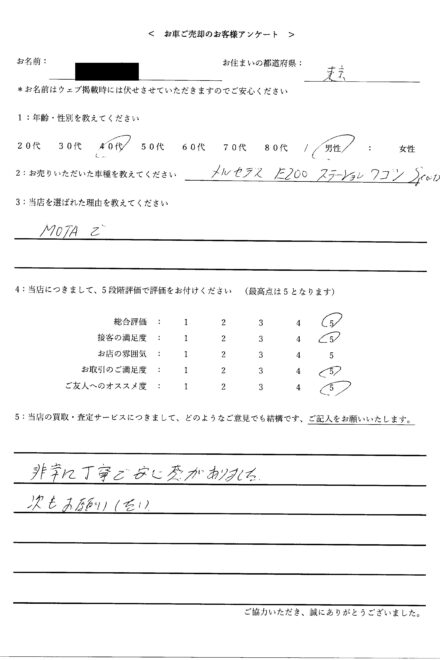 < お車ご売却のお客様アンケート >
お名前：
お住まいの都道府県： 東京
＊お名前はウェブ掲載時には伏せさせていただきますのでご安心ください
1：年齢・性別を教えてください
20代 30代 40代 50代 60代 70代 80代 / 男性 ： 女性
2：お売りいただいた車種を教えてください メルセデス E200 ステーションワゴン
3：当店を選ばれた理由を教えてください
MOTAで
4：当店につきまして、5段階評価で評価をお付けください （最高点は5となります）
総合評価 ： 1 2 3 4 5
接客の満足度 ： 1 2 3 4 5
お店の雰囲気 ： 1 2 3 4 5
お取引のご満足度 ： 1 2 3 4 5
ご友人へのオススメ度 ： 1 2 3 4 5
5：当店の買取・査定サービスにつきまして、どのようなご意見でも結構です、ご記入をお願いいたします。
非常に丁寧で安心感がありました
次もお願いしたい
ご協力いただき、誠にありがとうございました。